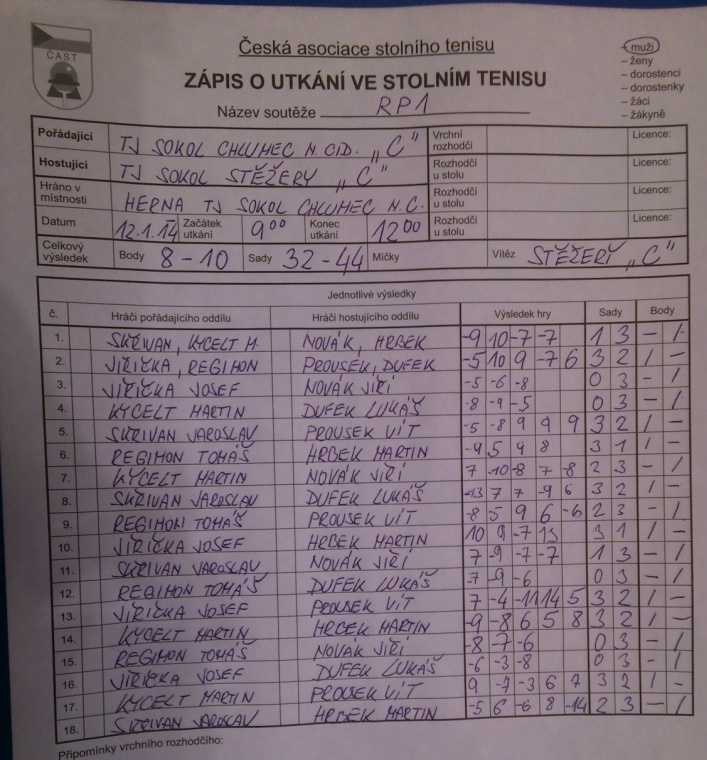 ČAST
Česká asociace stolního tenisu
ZÁPIS O UTKÁNÍ VE STOLNÍM TENISU
Název soutěže RP1
– muži
– ženy
– dorostenci
– dorostenky
– žáci
– žákyně
Pořádající TJ SOKOL CHLUMEC N. CID. „C" Vrchní rozhodčí Licence:
Hostující TJ SOKOL STĚŽERY „C" Rozhodčí u stolu Licence:
Hráno v místnosti HERNA TJ SOKOL CHLUMEC N.C. Rozhodčí u stolu Licence:
Datum 12.1.14 Začátek utkání 9 00 Konec utkání 12 00 Rozhodčí u stolu Licence:
Celkový výsledek Body 8-10 Sady 32-44 Míčky Vítěz STĚŽERY „C"
Jednotlivé výsledky
č. Hráči pořádajícího oddílu Hráči hostujícího oddílu Výsledek hry Sady Body
1. SKŘIVAN, KYCELT M. NOVÁK, HRBEK -9 10 -7 -7 1 3 - 1
2. JIŘIČKA, REGIMON PROUSEK, DUFEK -5 10 9 -7 6 3 2 1 -
3. JIŘIČKA JOSEF NOVÁK JIŘÍ -5 -6 -8 0 3 - 1
4. KYCELT MARTIN DUFEK LUKÁŠ -8 -9 -5 0 3 - 1
5. SKŘIVAN JAROSLAV PROUSEK VÍT -5 -8 9 9 9 3 2 1 -
6. REGIMON TOMÁŠ HRBEK MARTIN -9 5 9 8 3 1 1 -
7. KYCELT MARTIN NOVÁK JIŘÍ 7 -10 -8 7 -8 2 3 - 1
8. SKŘIVAN JAROSLAV DUFEK LUKÁŠ -13 7 7 -9 6 3 2 1 -
9. REGIMON TOMÁŠ PROUSEK VÍT -8 5 9 6 -6 2 3 - 1
10. JIŘIČKA JOSEF HRBEK MARTIN 10 9 -7 13 3 1 1 -
11. SKŘIVAN JAROSLAV NOVÁK JIŘÍ 7 -9 -7 -7 1 3 - 1
12. REGIMON TOMÁŠ DUFEK LUKÁŠ -7 -9 -6 0 3 - 1
13. JIŘIČKA JOSEF PROUSEK VÍT 7 -4 -11 14 5 3 2 1 -
14. KYCELT MARTIN HRBEK MARTIN -9 -8 6 5 8 3 2 1 -
15. REGIMON TOMÁŠ NOVÁK JIŘÍ -8 -7 -6 0 3 - 1
16. JIŘIČKA JOSEF DUFEK LUKÁŠ -6 -3 -8 0 3 - 1
17. KYCELT MARTIN PROUSEK VÍT 9 -7 -3 6 7 3 2 1 -
18. SKŘIVAN JAROSLAV HRBEK MARTIN -5 6 -6 8 -14 2 3 - 1
Připomínky vrchního rozhodčího: